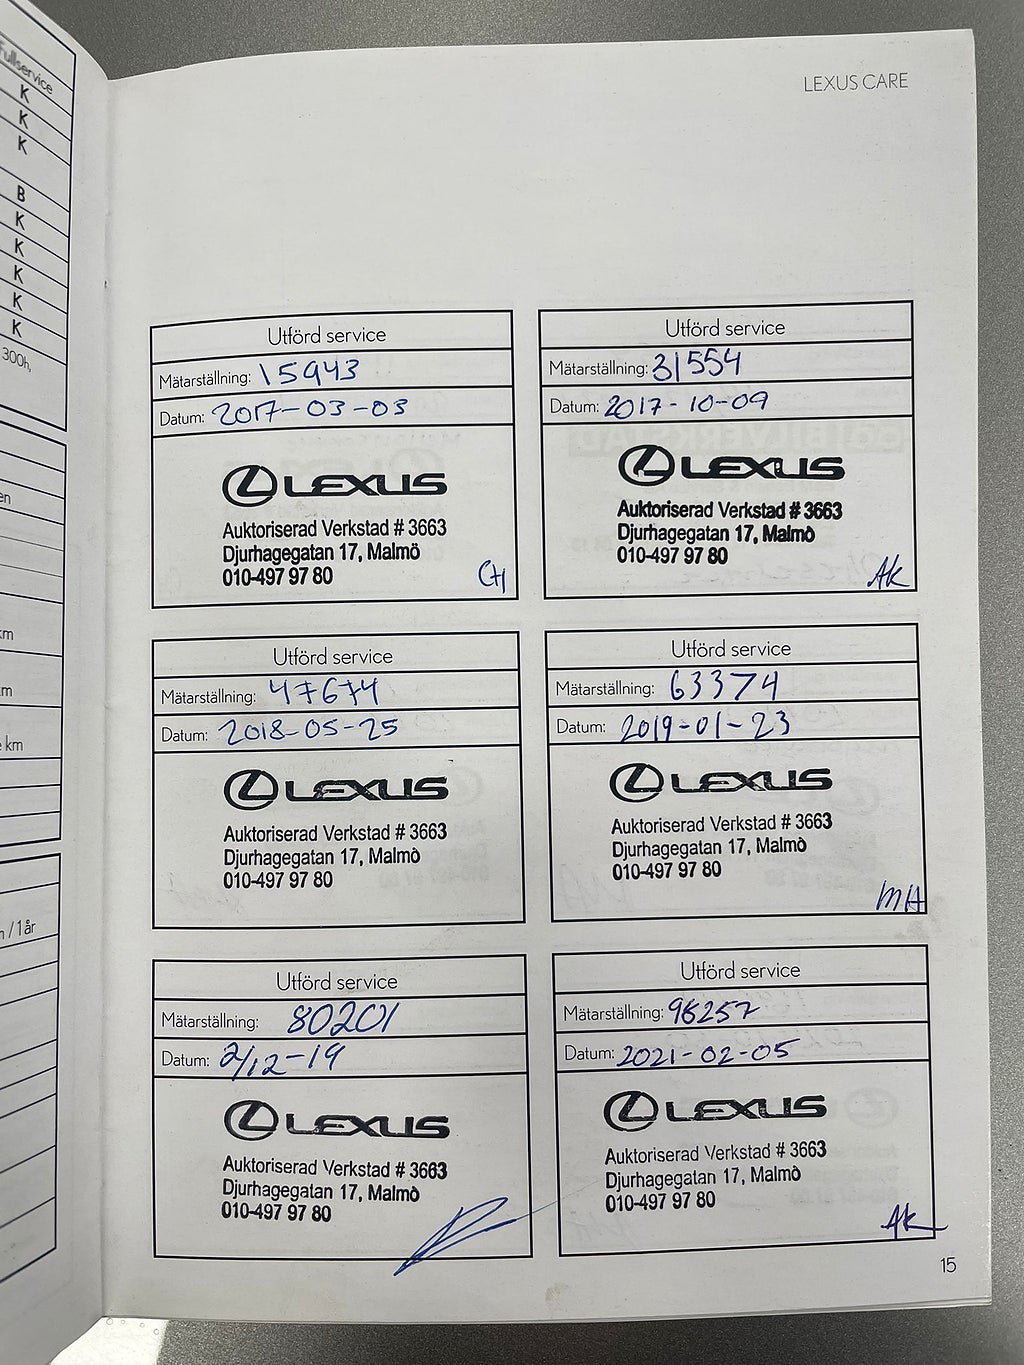 Fullservice
K
K
K
B
K
K
K
K
K
300h,
en
km
m
km
/ 1 år
LEXUS CARE
Utförd service
Mätarställning: 15943
Datum: 2017-03-03
LEXUS
Auktoriserad Verkstad # 3663
Djurhagegatan 17, Malmö
010-497 97 80
CH
Utförd service
Mätarställning: 31554
Datum: 2017-10-09
LEXUS
Auktoriserad Verkstad # 3663
Djurhagegatan 17, Malmö
010-497 97 80
AK
Utförd service
Mätarställning: 47674
Datum: 2018-05-25
LEXUS
Auktoriserad Verkstad # 3663
Djurhagegatan 17, Malmö
010-497 97 80
Utförd service
Mätarställning: 63374
Datum: 2019-01-23
LEXUS
Auktoriserad Verkstad # 3663
Djurhagegatan 17, Malmö
010-497 97 80
MA
Utförd service
Mätarställning: 80201
Datum: 2/12-19
LEXUS
Auktoriserad Verkstad # 3663
Djurhagegatan 17, Malmö
010-497 97 80
Utförd service
Mätarställning: 96257
Datum: 2021-02-05
LEXUS
Auktoriserad Verkstad # 3663
Djurhagegatan 17, Malmö
010-497 97 80
AK
15